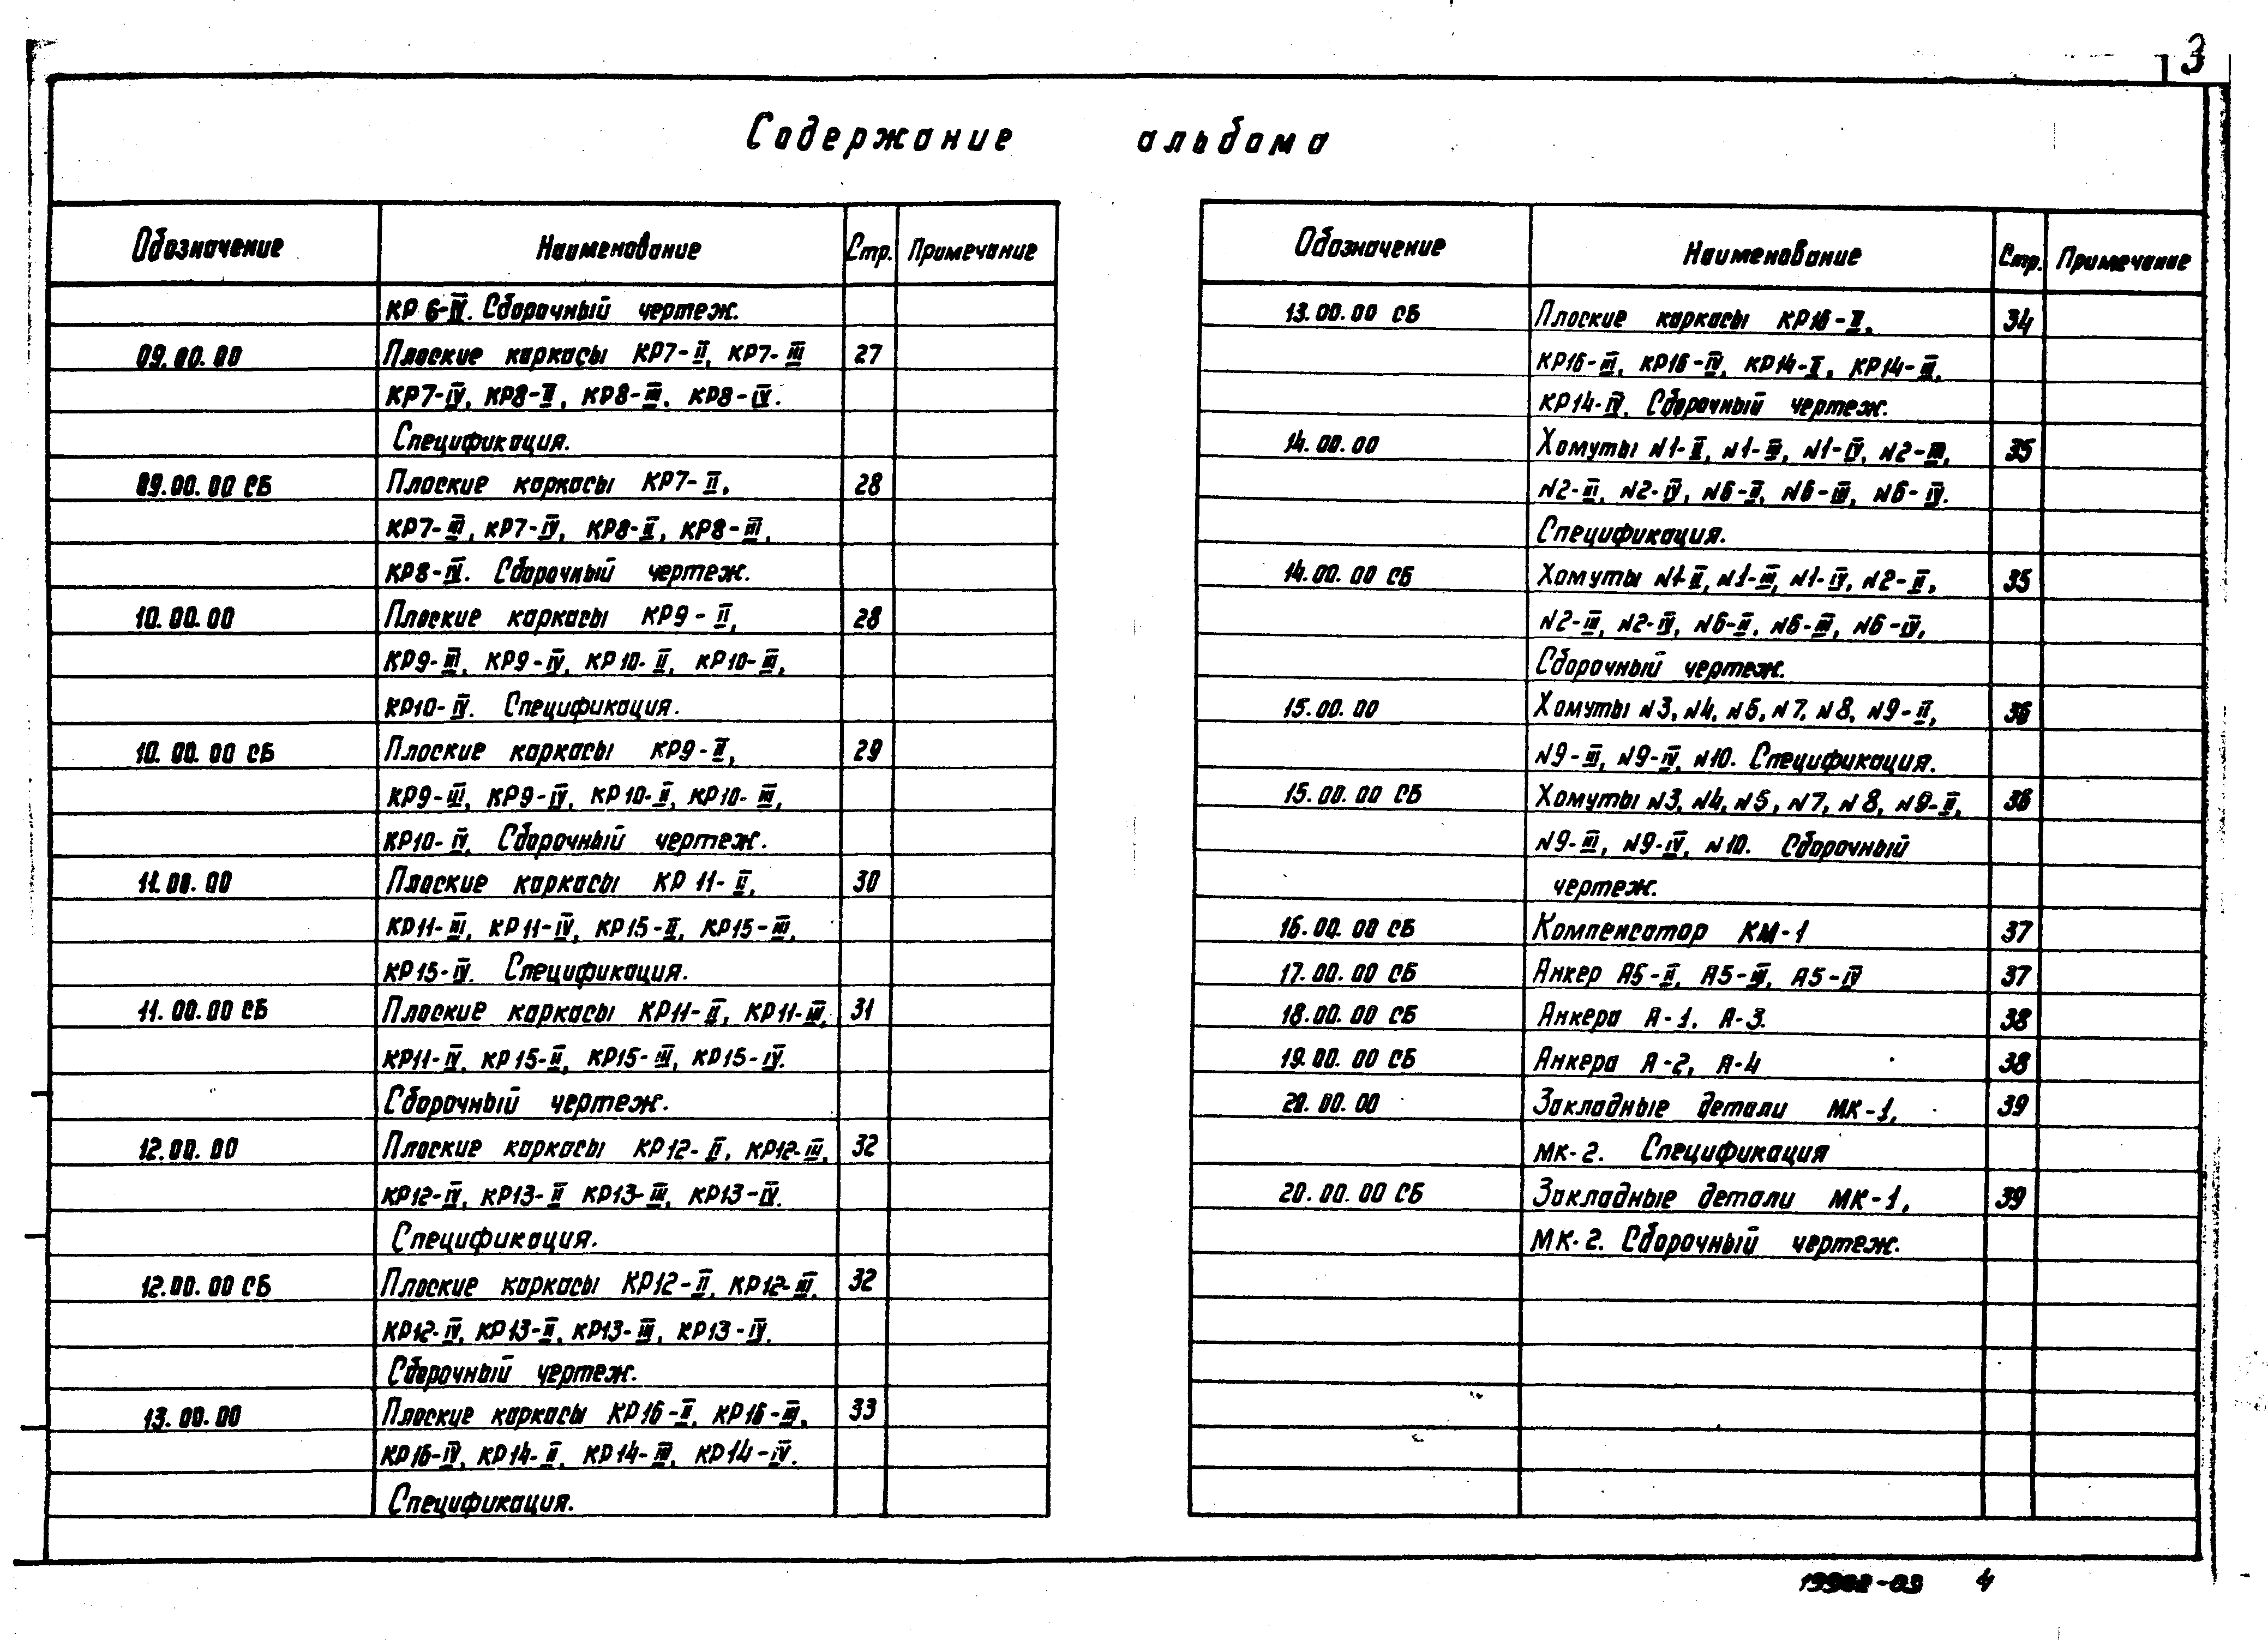 3
Содержание альбома
Обозначение Наименование Стр. Примечание
КР 6-IV. Сборочный чертеж.
09.00.00 Плоские каркасы КР7-II, КР7-III 27
КР7-IV, КР8-II, КР8-III, КР8-IV.
Спецификация.
09.00.00 СБ Плоские каркасы КР7-II, 28
КР7-III, КР7-IV, КР8-II, КР8-III,
КР8-IV. Сборочный чертеж.
10.00.00 Плоские каркасы КР9-II, 28
КР9-III, КР9-IV, КР10-II, КР10-III,
КР10-IV. Спецификация.
10.00.00 СБ Плоские каркасы КР9-II, 29
КР9-III, КР9-IV, КР10-II, КР10-III,
КР10-IV. Сборочный чертеж.
11.00.00 Плоские каркасы КР 11-II, 30
КР11-III, КР11-IV, КР15-II, КР15-III,
КР15-IV. Спецификация.
11.00.00 СБ Плоские каркасы КР11-II, КР11-III, 31
КР11-IV, КР15-II, КР15-III, КР15-IV.
Сборочный чертеж.
12.00.00 Плоские каркасы КР12-II, КР12-III, 32
КР12-IV, КР13-II КР13-III, КР13-IV.
Спецификация.
12.00.00 СБ Плоские каркасы КР12-II, КР12-III, 32
КР12-IV, КР13-II, КР13-III, КР13-IV.
Сборочный чертеж.
13.00.00 Плоские каркасы КР16-II, КР16-III, 33
КР16-IV, КР14-II, КР14-III, КР14-IV.
Спецификация.
Обозначение Наименование Стр. Примечание
13.00.00 СБ Плоские каркасы КР16-II, 34
КР16-III, КР16-IV, КР14-II, КР14-III,
КР14-IV. Сборочный чертеж.
14.00.00 Хомуты N1-II, N1-III, N1-IV, N2-III, 35
N2-III, N2-IV, N6-II, N6-III, N6-IV.
Спецификация.
14.00.00 СБ Хомуты N1-II, N1-III, N1-IV, N2-II, 35
N2-III, N2-IV, N6-II, N6-III, N6-IV,
Сборочный чертеж.
15.00.00 Хомуты N3, N4, N5, N7, N8, N9-II, 36
N9-III, N9-IV, N10. Спецификация.
15.00.00 СБ Хомуты N3, N4, N5, N7, N8, N9-II, 36
N9-III, N9-IV, N10. Сборочный
чертеж.
16.00.00 СБ Компенсатор КМ-1 37
17.00.00 СБ Анкер А5-II, А5-III, А5-IV 37
18.00.00 СБ Анкера А-1, А-3. 38
19.00.00 СБ Анкера А-2, А-4 38
20.00.00 Закладные детали МК-1, 39
МК-2. Спецификация
20.00.00 СБ Закладные детали МК-1, 39
МК-2. Сборочный чертеж.
19982-03 4